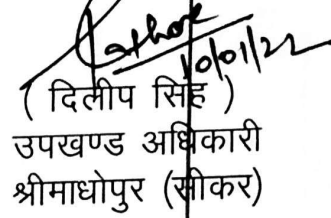 10/01/22
( दिलीप सिंह )
उपखण्ड अधिकारी
श्रीमाधोपुर (सीकर)